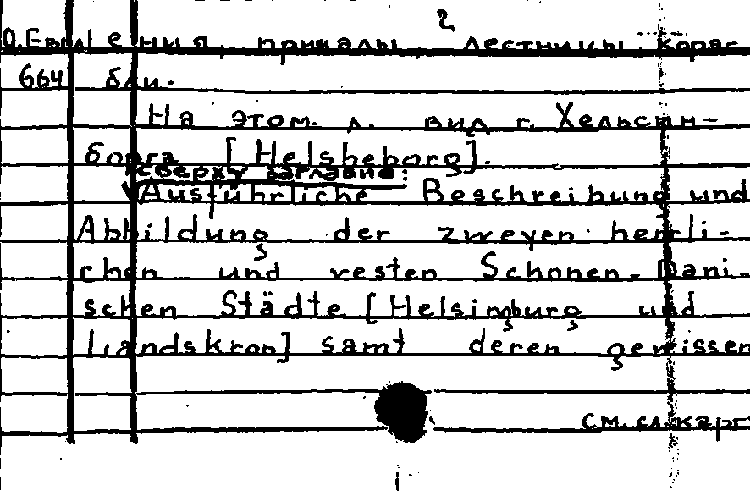 2
ения, причалы, лестницы, кораб-
664 бли.
На этом. л. вид г. Хельсин-
борга [Helsheborg].
сверху заглавие:
Ausführliche Beschreibung und
Abbildung der zweyen herrli-
chen und vesten Schonen-Dani-
schen Städte [Helsimburg und
Landskron] samt deren gewissen
см. сл. карт